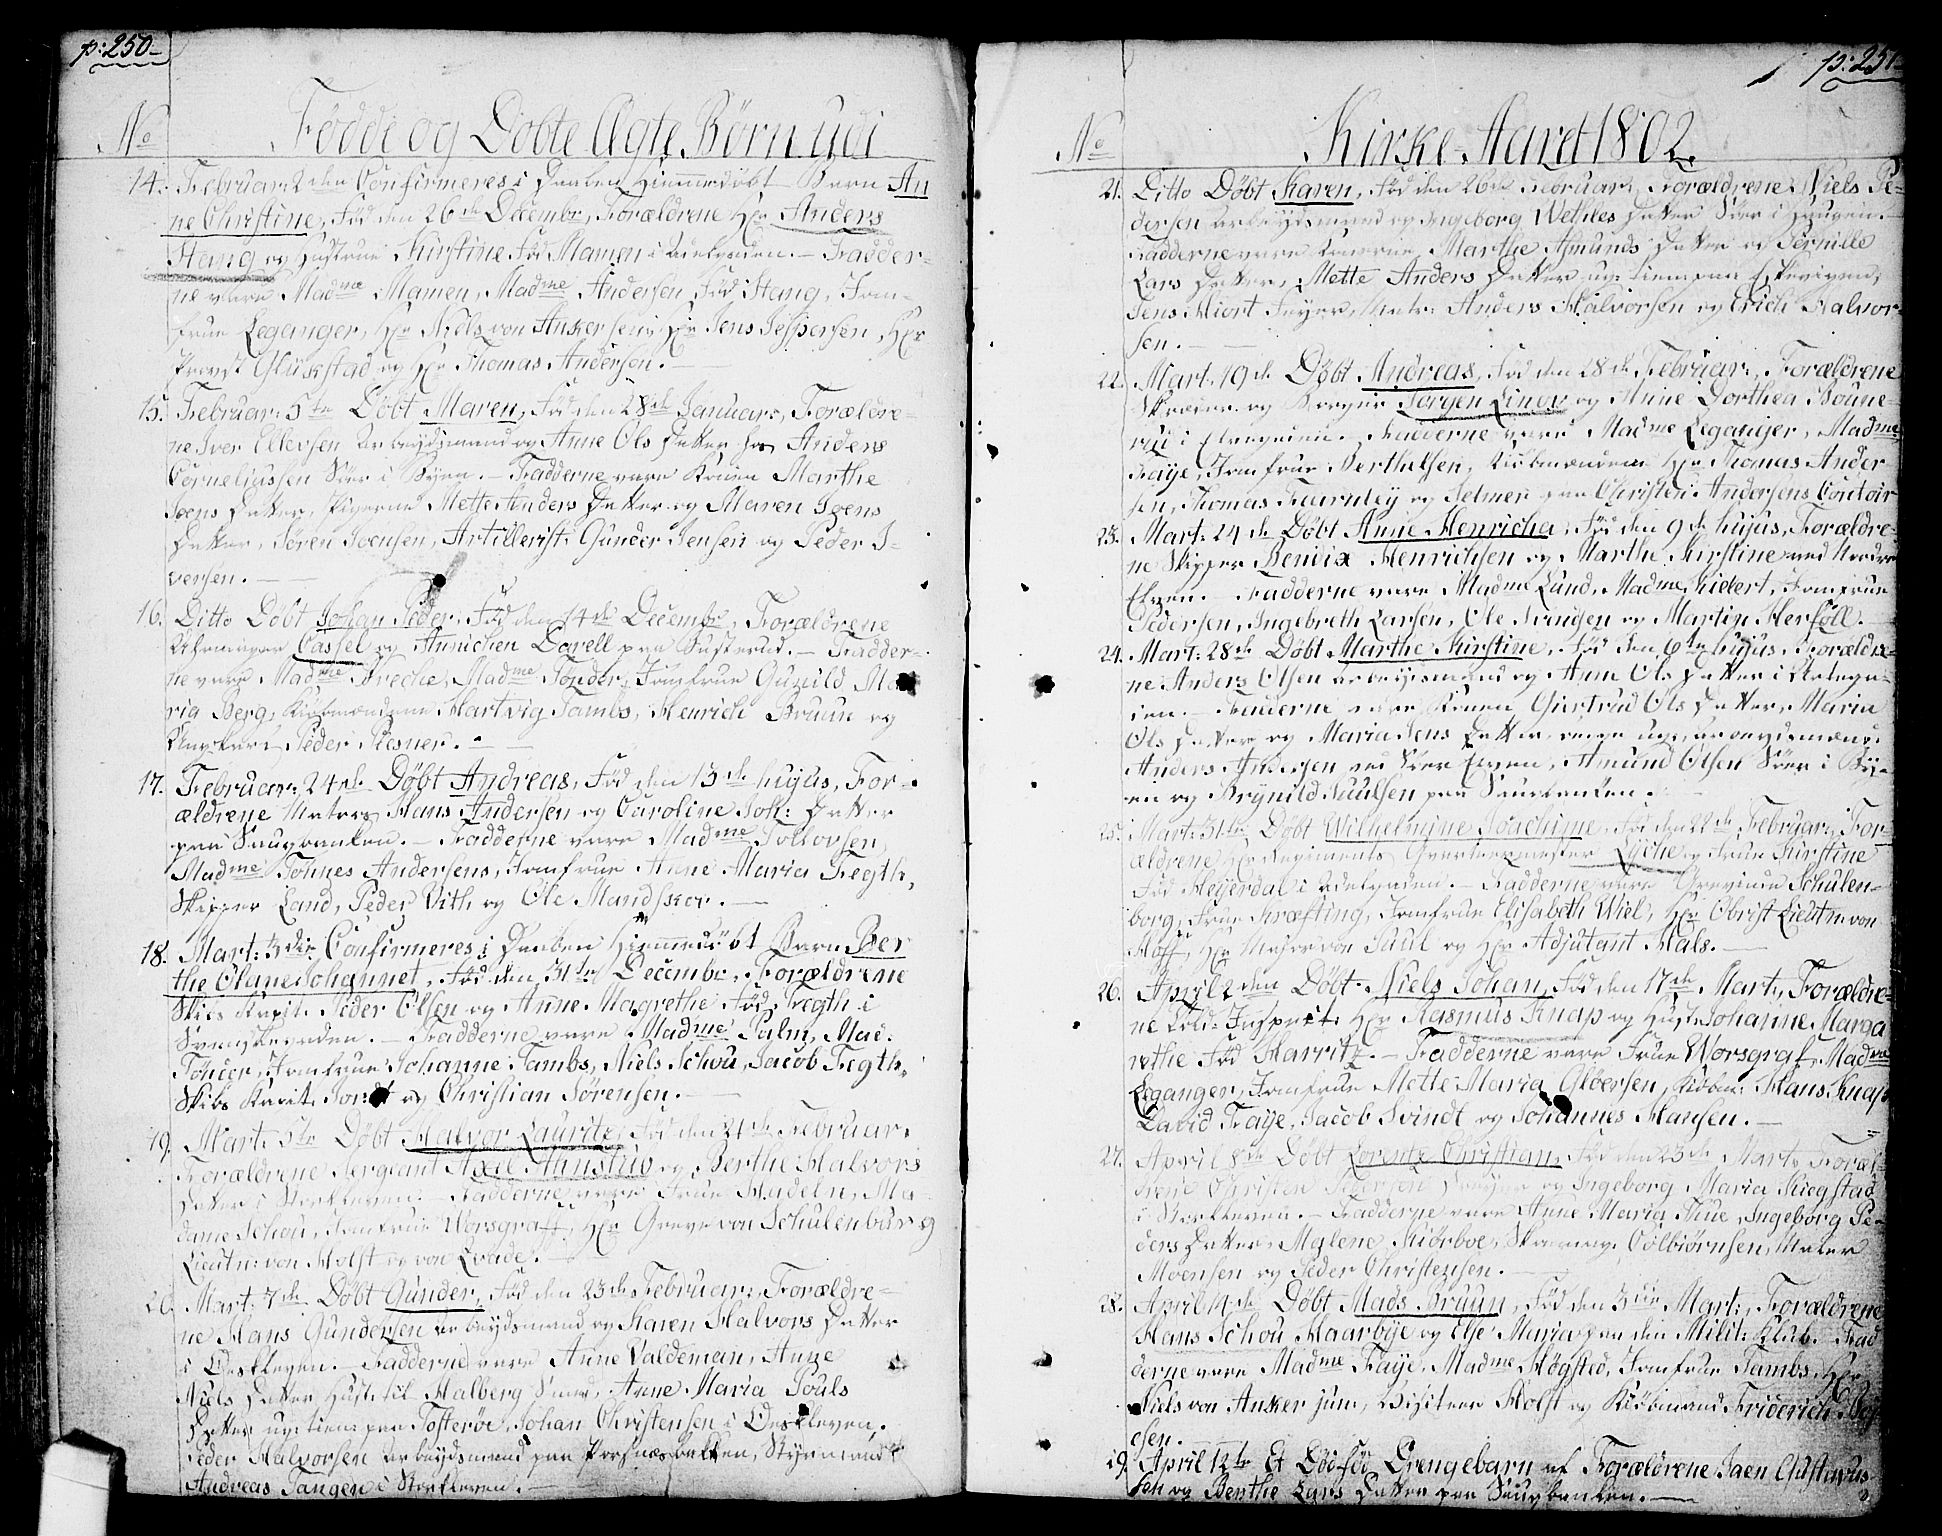 p: 250
No
Fødde og Døbte Ægte Børn udi
14. Februar: 2den Confirmeres i Daaben Hiemmedøbt Barn An
ne Christine, Fød den 26de Decembr, Forældrene Hr Anders
Stang og Hustrue Kirstine Fød Mamen i Ladegaden. — Fadder-
ne vare Madme Mamen, Madme Andersen Fød Stang, Jom-
frue Leganger, Hr Niels von Anker jun: Hr Jens Jespersen, Hr
Provst Glückstad og Hr Thomas Andersen. —
15. Februar: 5te Døbt Maren, Fød den 28de Januar, Forældre-
ne Iver Ellevsen Arbeydsmand og Anne Ols Datter hos Anders
Corneliussen Sør i Byen. — Fadderne vare Konen Marthe
Svens Datter, Pigerne Mette Anders Datter og Maren Svens
Datter, Søren Svensen, Artillerist Gunder Jensen og Peder I-
versen. —
16. Ditto Døbt Johan Peder, Fød den 14de Decembr, Forældrene
Uhrmager Cassel og Annichen Dorell paa Susterud. — Fadder-
ne vare Madme Breche, Madme Tønder, Jomfrue Gunild Ma
ria Berg, Kiøbmændene Hartvig Tambs, Henrich Bruun og
Peder Plesner. —
17. Februar: 24de Døbt Andreas, Fød den 13de hujus, For-
ældrene Matros Hans Andersen og Caroline Joh: Datter
paa Saugbanken. — Fadderne vare Madme Tollovsen,
Madme Johnes Andersens, Jomfrue Anne Maria Tegth,
Skipper Land, Peder Vith og Ole Mandskor. —
18. Mart: 3die Confirmeres i Daaben Hiemmedøbt Barn Ber
the Olane Johannet, Fød den 31te Decembr, Forældrene
Skibs Capit. Peder Olsen og Anne Magrethe Fød Tegth i
Svenskegaden. — Fadderne vare Madme Palm, Mad:
Tønder, Jomfrue Johanne Tambs, Niels Schou, Jacob Tegth,
Skibs Kapit: og Christian Sørensen. —
19. Mart: 5te Døbt Halvor Lauritz, Fød den 21de Februar:
Forældrene Sergeant Axel Ahnstrup og Berthe Halvors
Datter i Storkleven. — Fadderne vare Frue Hudeln, Ma-
dame Schou, Jomfrue Worsgraff, Hr Greve von Schulenburg
Lieutn: von Holst og von Qvade. —
20. Mart: 7de Døbt Gunder, Fød den 23de Februar: Forældre-
ne Hans Gundersen Arbeydsmand og Karen Halvors Datter
i Oeskleven. — Fadderne vare Anne Valdeman, Anne
Niels Datter Hust: til Halberg Smed, Anne Maria Pouls
Datter ug: tien: paa Tosterøe, Johan Christensen i Oeskleven,
Peder Halvorsen Arbeydsmand paa Præsnesbakken, Styrmand
Andreas Tangen i Storkleven. —
p: 251
No
Kirke-Aaret 1802.
21. Ditto Døbt Karen, Fød den 26de Februar, Forældrene Niels Pe-
dersen Arbeydsmand og Ingeborg Wethles Datter Sør i Haugen. —
Fadderne vare Konerne Marthe Amunds Datter og Pernille
Lars Datter, Mette Anders Datter ug: tien: paa
Jens Hiort Føyer, Matr: Anders Halvorsen og Erich Halvor-
sen. —
22. Mart: 19de Døbt Andreas, Fød den 28de Februar:, Forældrene
Skræder og Borger Jørgen Linow og Anne Dorthea Boune-
rud i Elvegaden. — Fadderne vare Madme Leganger, Madme
Faye, Jomfrue Berthelsen, Kiøbmændene Hr Thomas Ander
sen, Thomas Fearnley og Selmer paa Christen Andersens Contoir
23. Mart: 24de Døbt Anne Henricha, Fød den 9de hujus, Forældre-
ne Skipper Bendix Henrichsen og Marthe Kirstine ved Nordre
Elven. — Fadderne vare Madme Lund, Madme Kickert, Jomfrue
Pedersen, Ingebreth Larsen, Ole Svensen og Martin Herføll. —
24. Mart: 28de Døbt Marthe Kirstine, Fød den 6te hujus, Forældre-
ne Anders Olsen Arbeydsmand og Anne Ols Datter i
ien. — Fadderne vare Konen Giertrud Ols Datter, Maria
Ols Datter og Maria Jens Datter begge ug:, Arbeydsmænd:
Anders Andersen ved Sør Elven, Amund Olsen Sør i By-
en og Brynild Poulsen paa Saugbanken. —
25. Mart: 31te Døbt Wilhelmine Joachime, Fød den 22de Februar, For-
ældrene Hr Regiments Qvarteermester Lyche og Frue Kirstine
Fød Heyerdal i Ladegaden. — Fadderne vare Grevinde Schulen-
borg, Frue Kræfting, Jomfrue Elisabeth Wiel, Hr Obrist Lieutn: von
Hoff, Hr Major von Paul og Hr Adjutant Hals. —
26. April 2den Døbt Niels Johan, Fød den 17de Mart:, Forældre-
ne Told: Inspect: Hr Rasmus Knap og Hust: Johanne Marga
rethe Fød Harritz. — Fadderne vare Frue Worsgraf, Madme
Leganger, Jomfrue Mette Maria Gløersen, Kiøbm: Hans Knap
David Faye, Jacob Svindt og Johannes Hansen. —
27. April 8de Døbt Lorentz Christian, Fød den 23de Mart:, Foræl-
drene Christen Pedersen og Ingeborg Maria Kiegstad
i Storkleven. — Fadderne vare Anne Maria Thue, Ingeborg Pe-
ders Datter, Malene Kiørboe, Colbiørnsen, Maler
Moensen og Peder Christensen. —
28. April 14de Døbt Mads Bruun, Fød den 3die Mart:, Forældrene
Hans Schou Maarbye og Else Maria paa den Milit: Klub. Fad
derne vare Madme Faye, Madme Høgsted, Jomfrue Tambs, Hr
Niels von Anker jun:, Visiteur Holst og Kiøbmand Friderich
esen. —
29. April 12te Et Dødfød Drengebarn af Forældrene Joen Gustavus
søn og Berthe Lars Datter paa Saugbanken. —